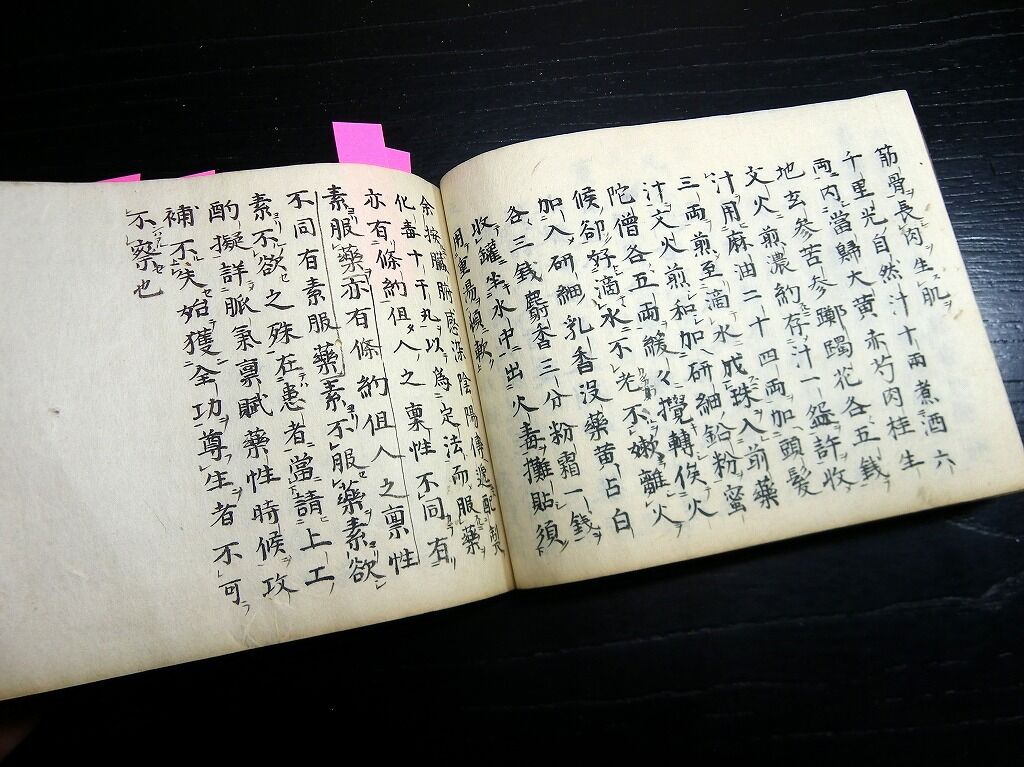 筋骨長肉生肌
千里光自然汁十兩煮酒六
両内當歸大黄赤芍肉桂生
地玄參苦参躑躅花各五銭
文火煎濃約存汁一盌許收
汁用麻油二十四両加頭髪
三両煎至滴水成珠入前藥
汁文火煎和加研細鉛粉蜜
陀僧各五両緩々攪轉俟火
候卻好滴水不老不嫩離火
加入研細乳香没藥黄占白
各三銭麝香三分粉霜一銭
收罐坐水中出火毒攤貼須
用重湯燉軟
余按臓腑感染陰陽傳遞配製
化毒十干丸以為定法而服藥
亦有條約但人之禀性不同有
素服藥亦有條約但人之禀性
不同有素服藥素不服藥素欲
素不欲之殊在患者當請上工
酌擬詳脈氣禀賦藥性時候攻
補不失始獲全功尊生者不可
不察也